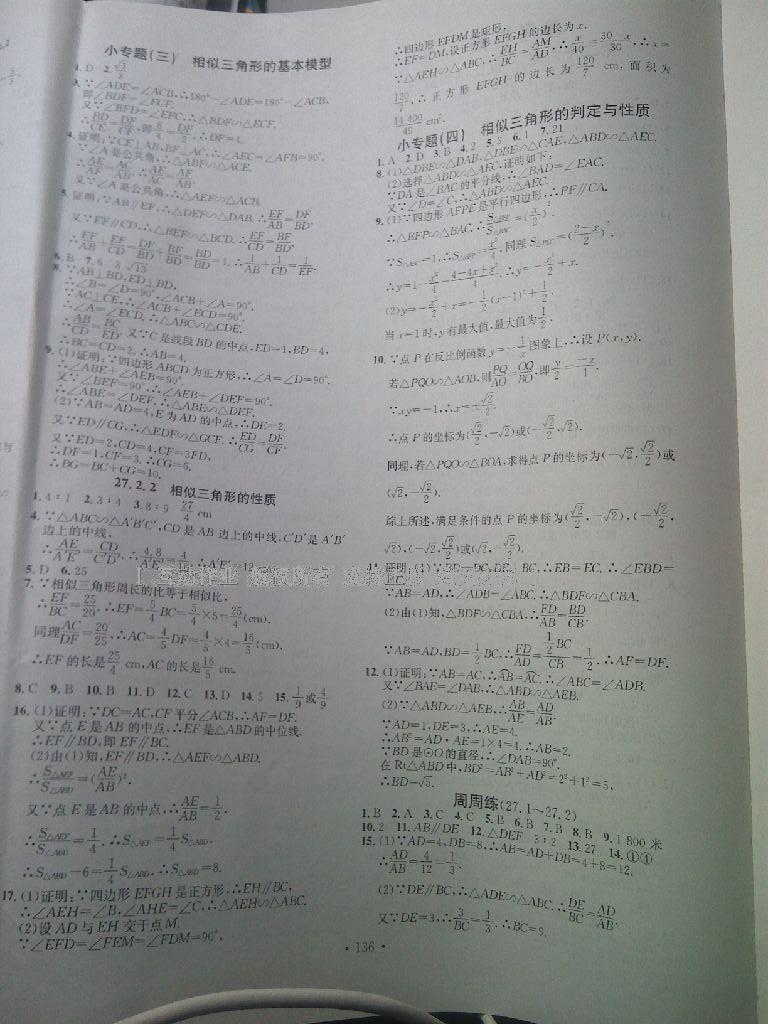 小专题(三) 相似三角形的基本模型
1.D 2.√3/3
3.∵∠ADE=∠ACB,∴180°-∠ADE=180°-∠ACB,
即∠BDF=∠ECF.
又∵∠BFD=∠EFC,∴△BDF∽△ECF.
∴BD/CE=DF/CF,即8/4=DF/2.∴DF=4.
4.证明:∵CE⊥AB,BF⊥AC,∴∠AEC=∠AFB=90°.
又∵∠A是公共角,∴△ABF∽△ACE.
∴AE/AF=AC/AB.∴AE/AC=AF/AB.
又∵∠A是公共角,∴△AEF∽△ACB.
5.证明:∵AB∥EF,∴△DEF∽△DAB.∴EF/AB=DF/DB.
又∵EF∥CD,∴△BEF∽△BCD.∴EF/CD=BF/BD.
∴EF/AB+EF/CD=DF/BD+BF/BD=BD/BD=1.∴1/AB+1/CD=1/EF.
6.B 7.6 3√13
8.∵AB⊥BD,ED⊥BD,
∴∠B=∠D=90°,∠ACB+∠A=90°.
∵AC⊥CE,∴∠ACB+∠ECD=90°.
∴∠A=∠ECD.∴△ABC∽△CDE.
∴AB/CD=BC/ED.又∵C是线段BD的中点,ED=1,BD=4,
∴BC=CD=2.∴AB=4.
9.(1)证明:∵四边形ABCD为正方形,∴∠A=∠D=90°.
∴∠ABE+∠AEB=90°.
又∵∠BEF=90°,∴∠AEB+∠DEF=90°.
∴∠ABE=∠DEF.∴△ABE∽△DEF.
(2)∵AB=AD=4,E为AD的中点,∴DE=2.
又∵ED∥CG,∴△EDF∽△GCF.∴ED/CG=DF/CF.
又∵ED=2,CD=4,CF=3FD,
∴DF=1,CF=3.∴CG=6.
∴BG=BC+CG=10.
27.2.2 相似三角形的性质
1.4∶1 2.3∶4 3.8∶9 27/4 cm
4.∵△ABC∽△A′B′C′,CD是AB边上的中线,C′D′是A′B′
边上的中线,
5.D 6.25
7.∵相似三角形周长的比等于相似比,
∴EF/BC=25/20.∴EF=5/4BC=5/4×5=25/4(cm).
同理AC/DF=20/25,∴AC=4/5DF=4/5×4=16/5(cm).
∴EF的长是25/4 cm,AC的长是16/5 cm.
8.C 9.B 10.B 11.D 12.C 13.D 14.5 15.1/9或4/9
16.(1)证明:∵DC=AC,CF平分∠ACB,∴AF=DF.
又∵点E是AB的中点,∴EF是△ABD的中位线.
∴EF∥BD,即EF∥BC.
(2)由(1)知,EF∥BD,∴△AEF∽△ABD.
∴S△AEF/S△ABD=(AE/AB)².
又∵点E是AB的中点,∴AE/AB=1/2.
∴S△AEF/S△ABD=1/4.∴S△AEF=1/4S△ABD.
∴S△ABD-6=1/4S△ABD.∴S△ABD=8.
17.(1)证明:∵四边形EFGH是正方形,∴EH∥BC,
∴∠AEH=∠B,∠AHE=∠C.∴△AEH∽△ABC.
(2)设AD与EH交于点M.
∵∠EFD=∠FEM=∠FDM=90°,
∴四边形EFDM是矩形.
∴EF=DM,设正方形EFGH的边长为x.
∵△AEH∽△ABC,∴EH/BC=AM/AD.∴x/40=(30-x)/30,∴x=
120/7,∴正方形EFGH的边长为120/7 cm,面积为
14 400/49 cm².
小专题(四) 相似三角形的判定与性质
1.A 2.D 3.B 4.2 5.3 6.1 7.21
8.(1)△DBE∽△DAB,△DBE∽△CAE,△ABD∽△AEC.
(2)选择△ABD∽△AEC,证明如下:
∵DA是∠BAC的平分线,∴∠BAD=∠EAC.
又∵∠D=∠C,∴△ABD∽△AEC.
9.(1)∵四边形AFPE是平行四边形,∴PF∥CA.
∴△BFP∽△BAC.∴S△BFP/S△BAC=(x/2)².
∵S△ABC=1,∴S△BFP=x²/4.同理S△PEC=((2-x)/2)².
∴y=1-x²/4-(4-4x+x²)/4.∴y=-x²/2+x.
(2)y=-x²/2+x=-1/2(x-1)²+1/2.
当x=1时,y有最大值,最大值为1/2.
10.∵点P在反比例函数y=-1/x图象上,∴设P(x,y).
若△PQO∽△AOB,则PQ/AO=OQ/BO,即y/2=-x/1.
∵xy=-1,∴x=±√2/2.
∴点P的坐标为(√2/2,-√2)或(-√2/2,√2).
同理,若△PQO∽△BOA,求得点P的坐标为(-√2,√2/2)或
(√2,-√2/2).
综上所述,满足条件的点P的坐标为(√2/2,-√2),(-√2/2,
√2),(-√2,√2/2)或(√2,-√2/2).
∵AB=AD,∴∠ADB=∠ABC.∴△BDF∽△CBA.
(2)由(1)知,△BDF∽△CBA,∴FD/AB=BD/CB.
∵AB=AD,BD=1/2BC,∴FD/AD=1/2BC/CB=1/2.∴AF=DF.
12.(1)证明:∵AB=AC,∴AB=AC.∴∠ABC=∠ADB.
又∵∠BAE=∠DAB,∴△ABD∽△AEB.
(2)∵△ABD∽△AEB,∴AB/AE=AD/AB.
∵AD=1,DE=3,∴AE=4.
∴AB²=AD·AE=1×4=4.∴AB=2.
∵BD是⊙O的直径,∴∠DAB=90°.
在Rt△ABD中,BD²=AB²+AD²=2²+1²=5,
∴BD=√5.
周周练(27.1~27.2)
1.B 2.A 3.C 4.C 5.B 6.B 7.B 8.B 9.1 800米
10.2 11.AB∥DE 12.△DEF 3∶2 13.27 14.①③
15.(1)∵AD=4,DB=8,∴AB=AD+DB=4+8=12.
∴AD/AB=4/12=1/3.
(2)∵DE∥BC,∴△ADE∽△ABC.∴DE/BC=AD/AB.
又∵DE=3,∴3/BC=1/3.∴BC=9.
·136·